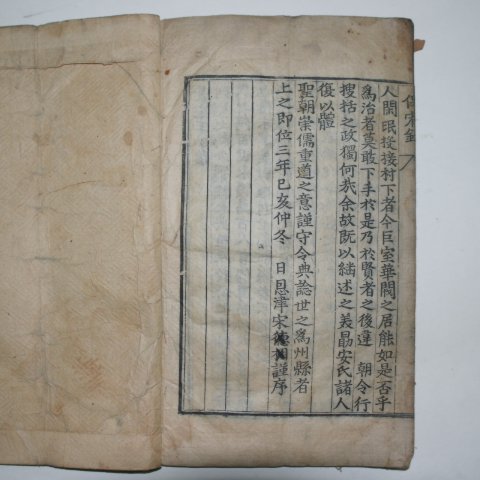 人閒眠投接村下者今巨室華閥之居能如是否乎
爲治者莫敢下手於是乃於賢者之後違 朝令行
搜括之政獨何哉余故旣以繼述之義勗安氏諸人
復以體
聖朝崇儒重道之意謹守令典諗世之爲州縣者
上之卽位三年己亥仲冬 日恩津宋德相謹序